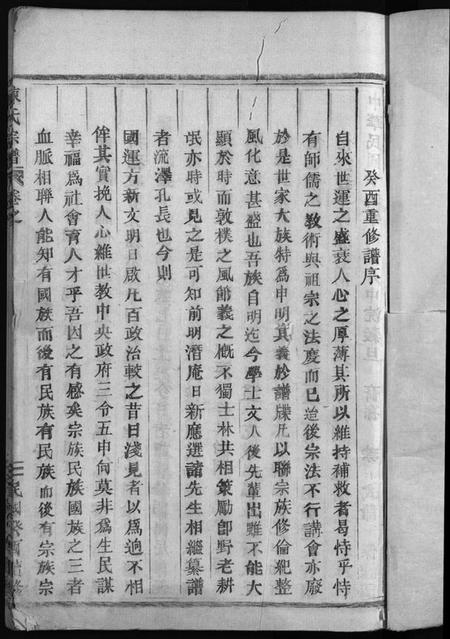 癸酉重修譜序
自來世運之盛衰人心之厚薄其所以維持補救者曷恃乎恃
有師儒之教術與祖宗之法度而已迨後宗法不行講會亦廢
於是世家大族特為申明其義於譜牒凡以聯宗族修倫紀整
風化意甚盛也吾族自明迄今學士文人後先輩出雖不能大
顯於時而敦樸之風節義之槪不獨士林共相策勵卽野老耕
氓亦時或見之是可知前明潛庵日新應選諸先生相繼纂譜
者流澤孔長也今則
國運方新文明日啟凡百政治較之昔日淺見者以為逈不相
侔其實挽人心維世教中央政府三令五申何莫非為生民謀
幸福為社會育人才乎吾因之有感矣宗族民族國族之三者
血脈相聯人能知有國族而後有民族有民族而後有宗族宗
陳氏宗譜
卷之
民國癸酉續修